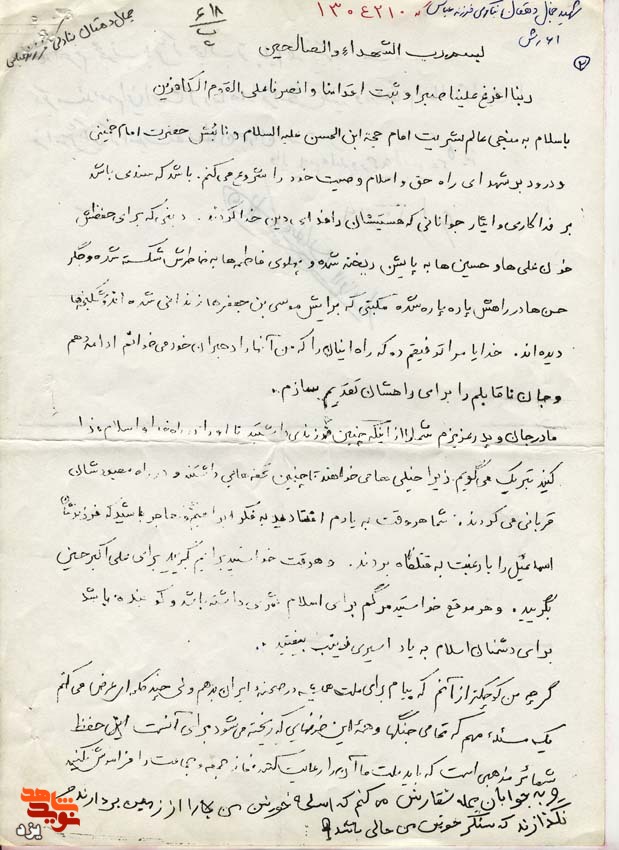 شهید جمال دهقان نیاکی فرزند عباس کد ۱۳۰۶۲۱۰
جمال دهقان
۲
بسم رب الشهداء و الصالحین
ربنا افرغ علینا صبرا و ثبت اقدامنا و انصرنا علی القوم الکافرین
باسلام به منجی عالم بشریت امام حجة ابن الحسن علیه السلام و نائبش حضرت امام خمینی
و درود بر شهدای راه حق و اسلام وصیت خود را شروع می کنم. باشد که سندی باشد
بر فداکاری و ایثار جوانانی که هستیشان را فدای دین خدا کردند. دینی که برای حفظش
خون علی ها و حسین ها به پایش ریخته شده و پهلوی فاطمه ها به خاطرش شکسته شده و جگر
حسن ها در راهش پاره پاره شده مکتبی که برایش موسی بن جعفرها زندانی شده اند و شکنجه ها
دیده اند. خدایا مرا توفیقم ده که راه اینان را که من آنها را رهبران خود می خوانم ادامه دهم
و جان ناقابلم را برای راهشان تقدیم سازم.
مادر جان و پدر عزیزم شما را از اینکه چنین فرزندی داشتید تا او را در راه خدا و اسلام فدا
کنید تبریک می گویم زیرا خیلی ها می خواهند تا چنین تحفه هایی داشتند و در راه معبودشان
قربانی می کردند. شما هر وقت به یادم افتادید به فکر ابراهیم و هاجر باشید که فرزندشان
اسماعیل را با رغبت به قتلگاه بردند. و هر وقت خواستید برایم بگریید برای علی اکبر حسین
بگریید. و هر موقع خواستید مرگم برای اسلام ثمری داشته باشد و کوبنده باشد
برای دشمنان اسلام به یاد اسیری زینب بیفتید..
گرچه من کوچکتر از آنم که پیام برای ملت همیشه در صحنه ایران بدهم ولی چند کلمه ای عرض می کنم
یک مسئله مهم که تمامی جنگها و همه این خونهایی که ریخته می شود برای آنست اول حفظ
شعائر مذهبی است که باید ملت ما آن را رعایت کنند و نماز جمعه و جماعت را فراموش نکنید
و به جوانان محله سفارش می کنم که اسلحه خونین من را از زمین بردارند و
نگذارند که سنگر خونین من خالی باشد
شاهد
نوید
یزد